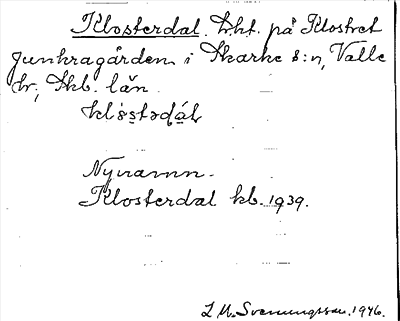 Klosterdal. trkt. på Klostret
Junkragården i Skarke s:n, Valle
hr; Skb. län.
klòstədɑ́l
Nynamn.
Klosterdal kb. 1939.
L M. Svenungsson. 1946.